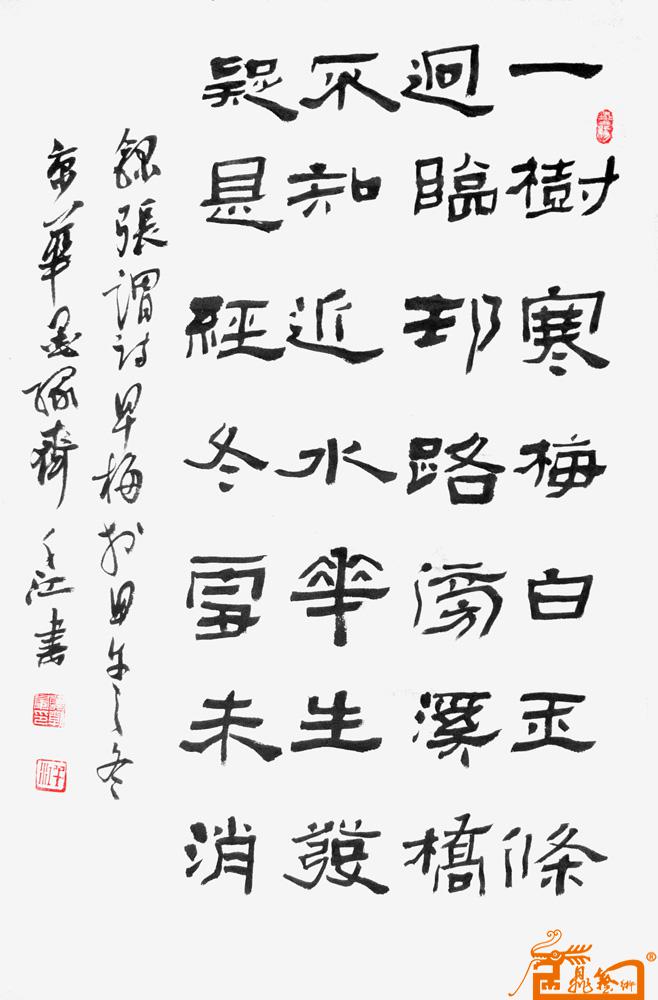 一樹寒梅白玉條
迥臨邨路傍溪橋
不知近水華生發
疑是經冬雪未消
錄張謂詩早梅於甲午之冬
京華墨緣齋千江書